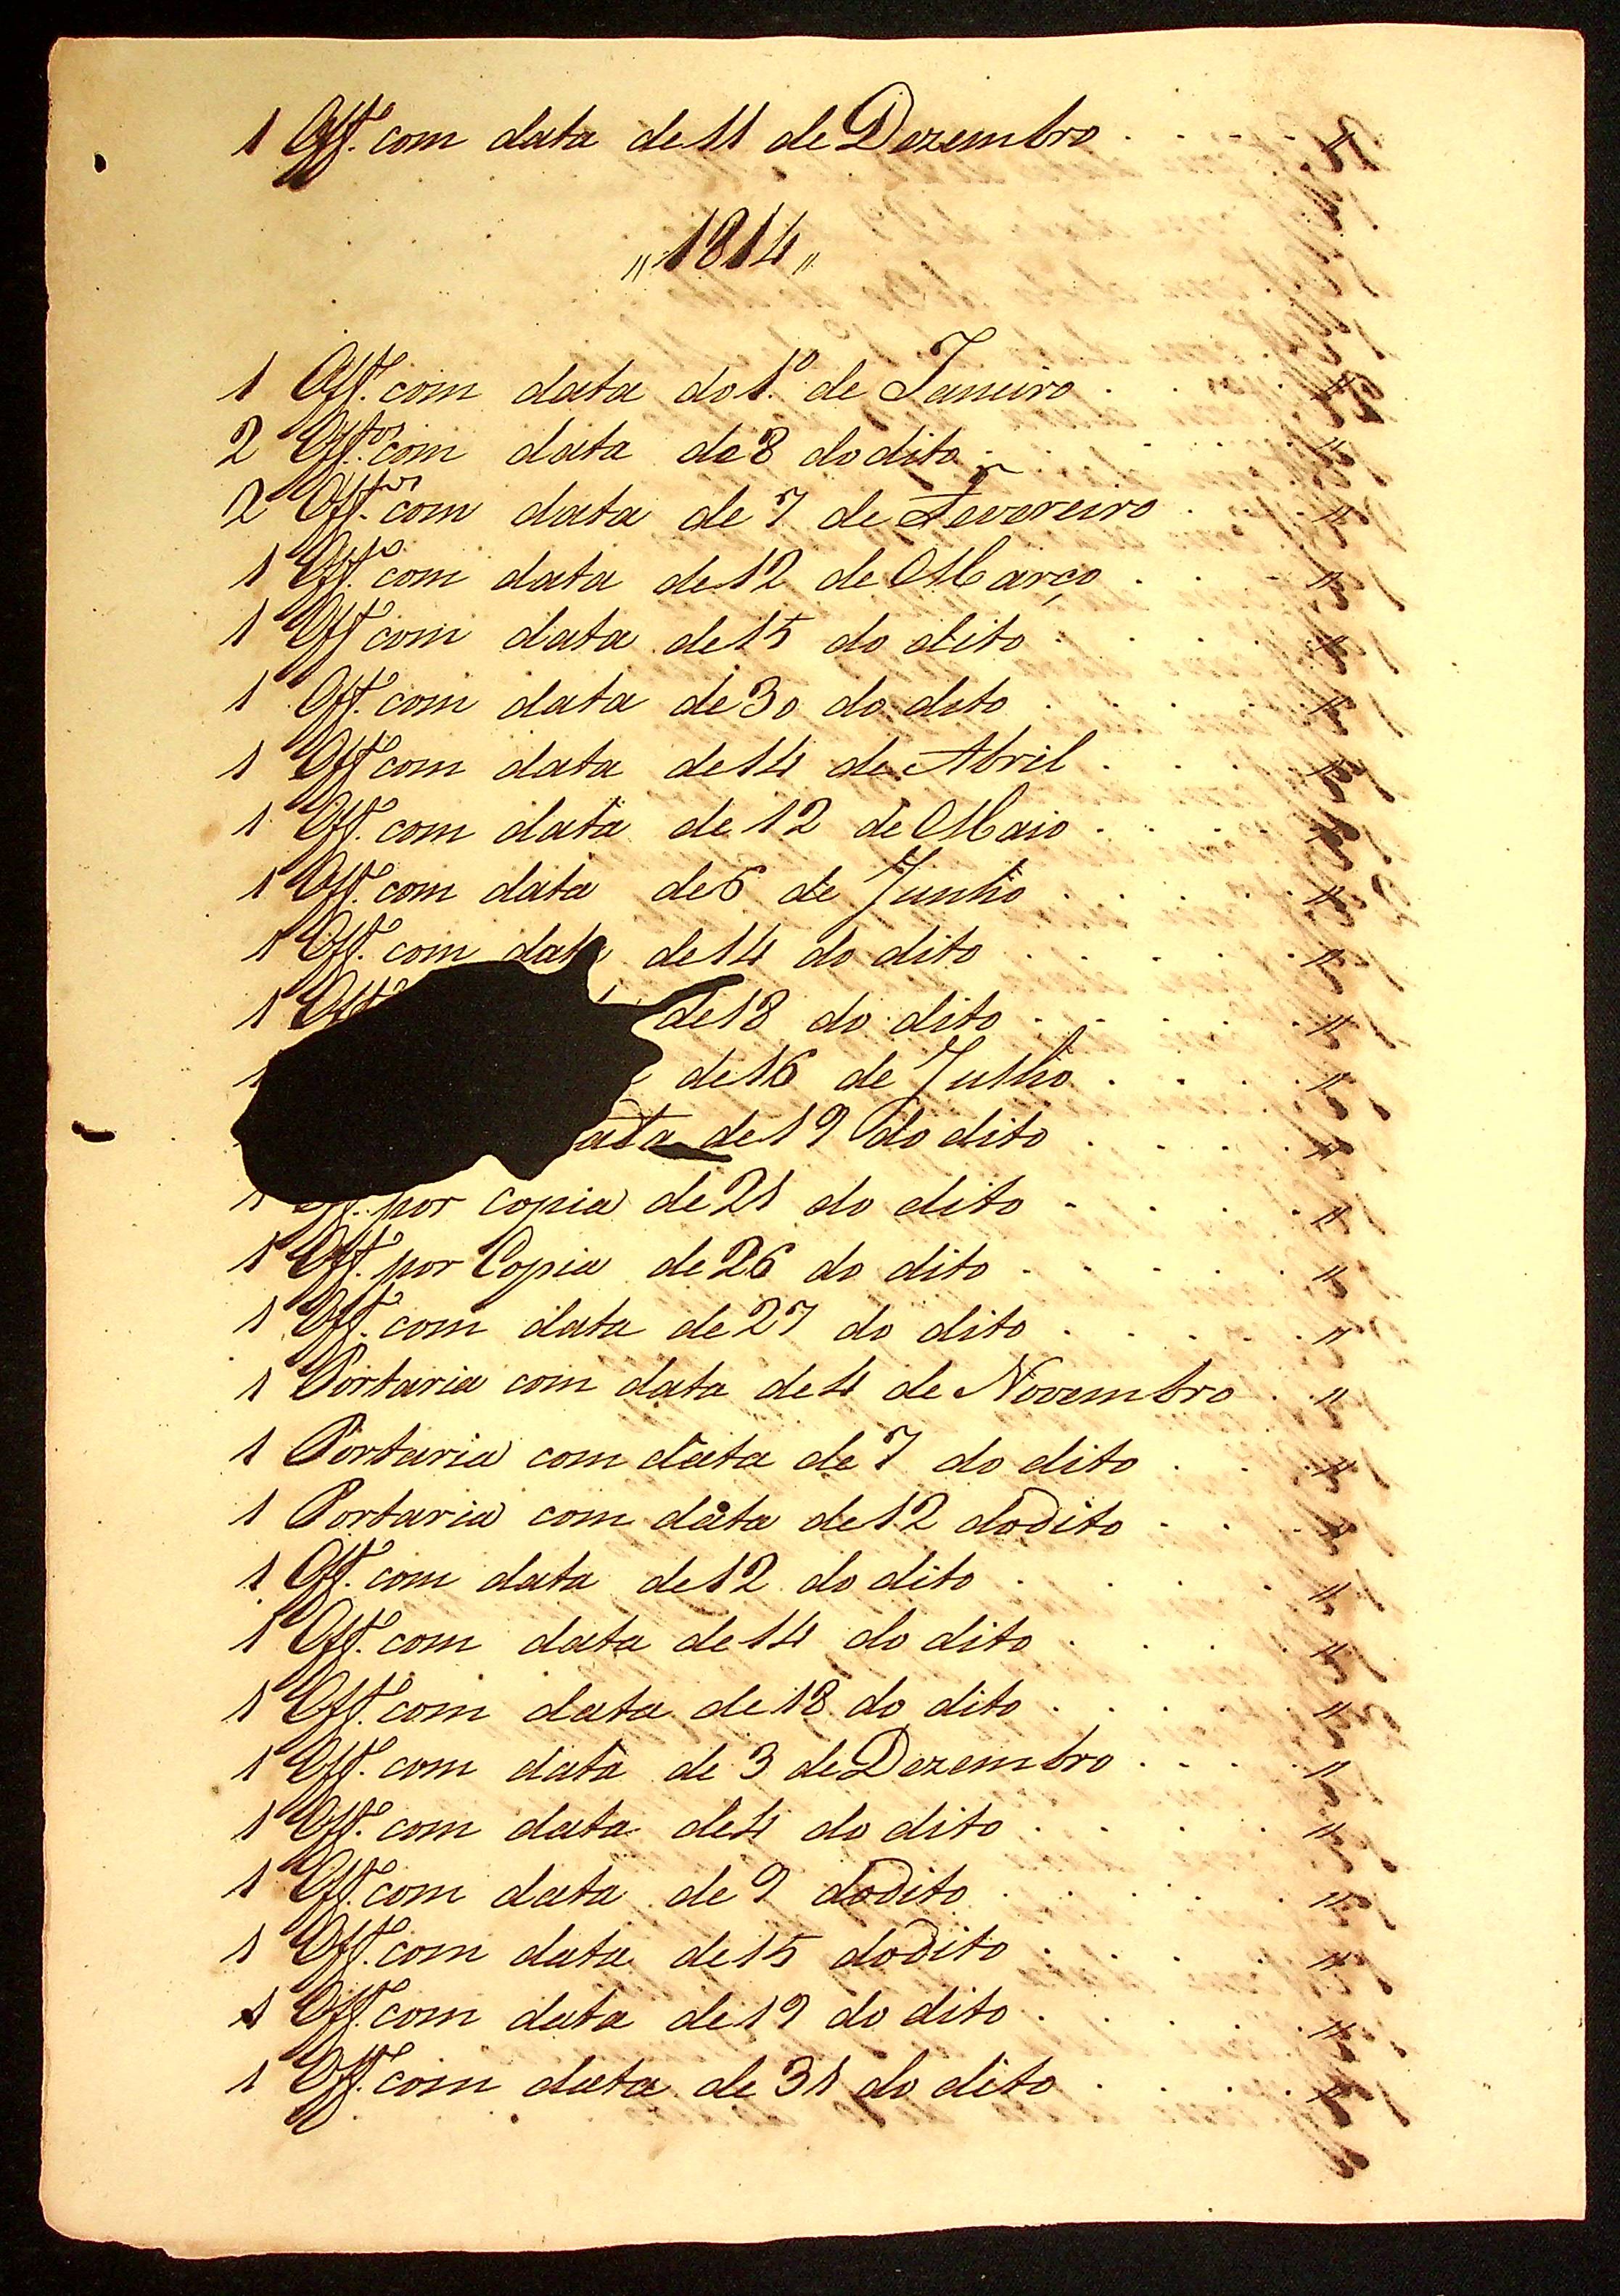 1 Off.º com data de 11 de Dezembro . . . . . "
„ 1814 „
1 Off.º com data do 1.º de Janeiro . . . . "
2 Off.os com data de 8 do dito . . . . . "
2 Off.os com data de 7 de Fevereiro . . . "
1 Off.º com data de 12 de Março . . . "
1 Off.º com data de 15 do dito . . . . . "
1 Off.º com data de 30 do dito . . . . . "
1 Off.º com data de 14 de Abril . . . . "
1 Off.º com data de 12 de Maio . . . . "
1 Off.º com data de 6 de Junho . . . . . "
1 Off.º com data de 14 do dito . . . . . "
1 Off.º de 18 do dito . . . . . "
1 de 16 de Julho . . . . "
ata de 19 do dito . . . . "
1 Off.º por copia de 21 do dito . . . . . "
1 Off.º por Copia de 26 do dito . . . . . "
1 Off.º com data de 27 do dito . . . . . "
1 Portaria com data de 4 de Novembro . "
1 Portaria com data de 7 do dito . . . "
1 Portaria com data de 12 do dito . . . "
1 Off.º com data de 12 do dito . . . . "
1 Off.º com data de 14 do dito . . . . "
1 Off.º com data de 18 do dito . . . . . "
1 Off.º com data de 3 de Dezembro . . . . "
1 Off.º com data de 4 do dito . . . . . "
1 Off.º com data de 9 do dito . . . . . "
1 Off.º com data de 15 do dito . . . . "
1 Off.º com data de 19 do dito . . . . . "
1 Off.º com data de 31 do dito . . . . "